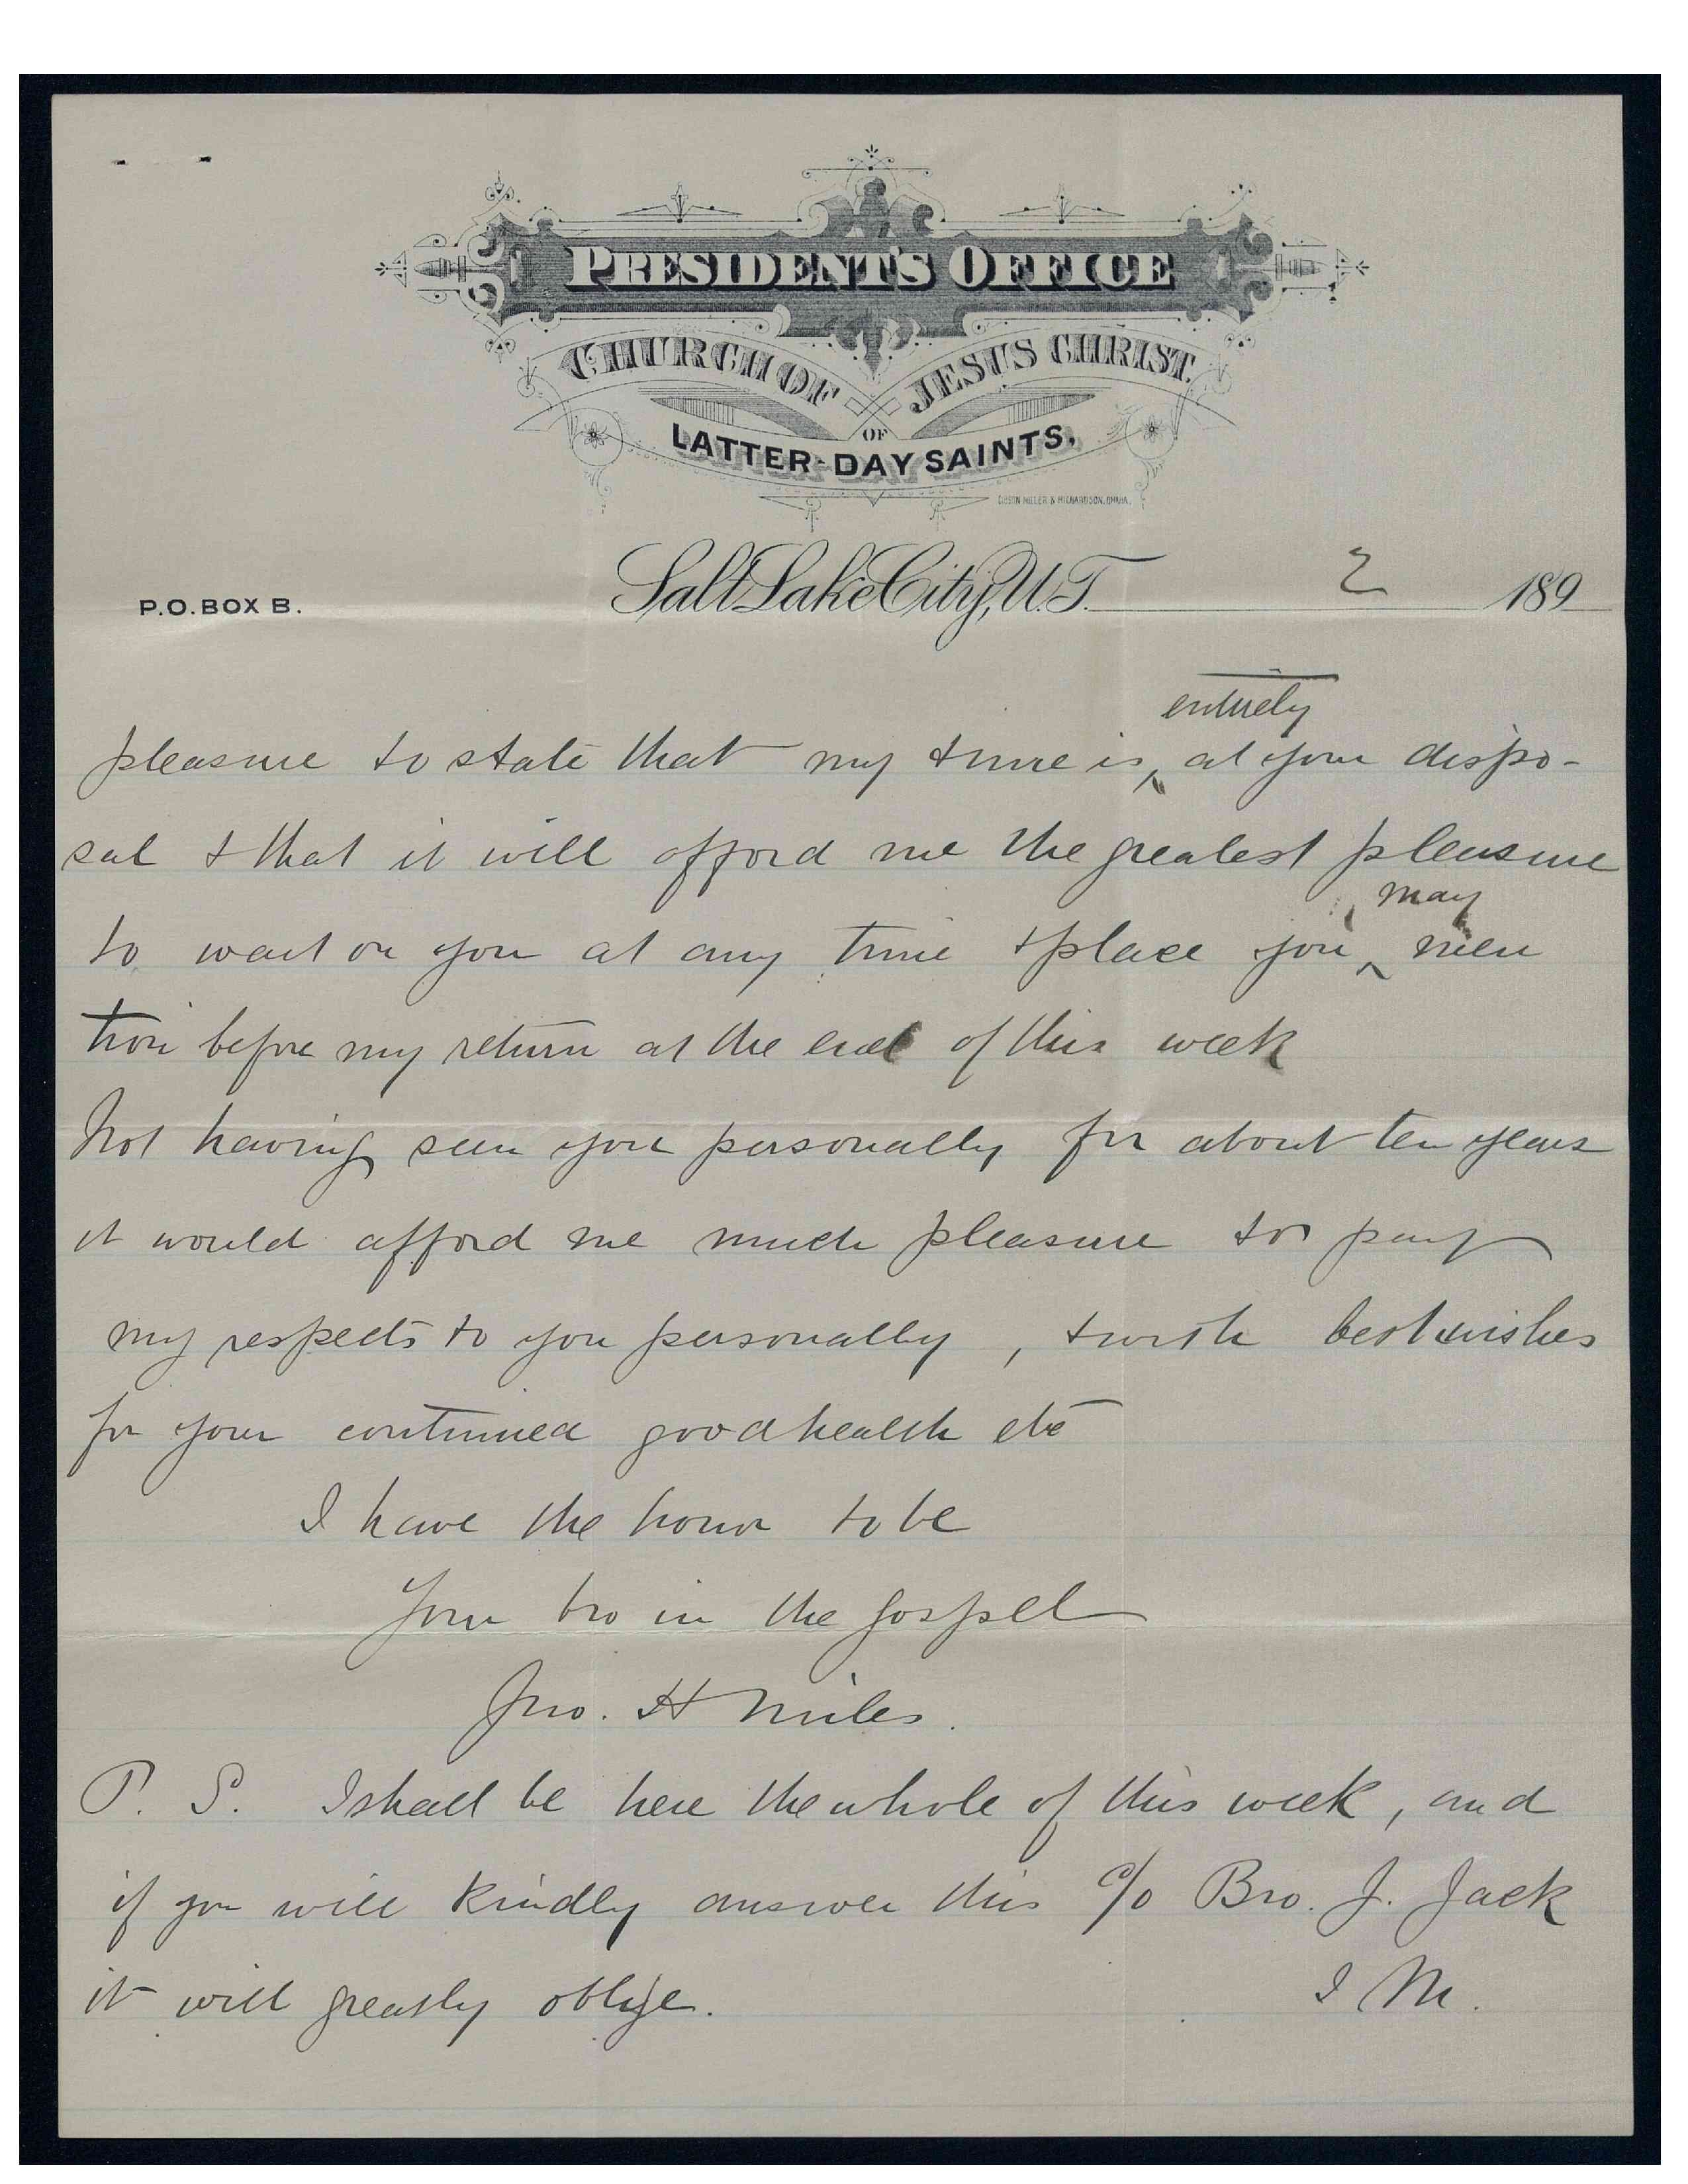 PRESIDENT'S OFFICE
CHURCH OF JESUS CHRIST
OF
LATTER-DAY SAINTS.
GIBSON MILLER & RICHARDSON, OMAHA.
P.O. BOX B.
Salt Lake City, U.T. 2 189
entirely
pleasure to state that my time is ‸ at your dispo-
sal & that it will afford me the greatest pleasure
may
to wait on you at any time & place you ‸ men
tion before my return at the end of this week
Not having seen you personally for about ten years
it would afford me much pleasure to pay
my respects to you personally, & with best wishes
for your continued good health etc
I have the honor to be
Your bro in the gospel
Jno. H Miles.
P. S. I shall be here the whole of this week, and
if you will kindly answer this c/o Bro. J. Jack
it will greatly oblige. J M.